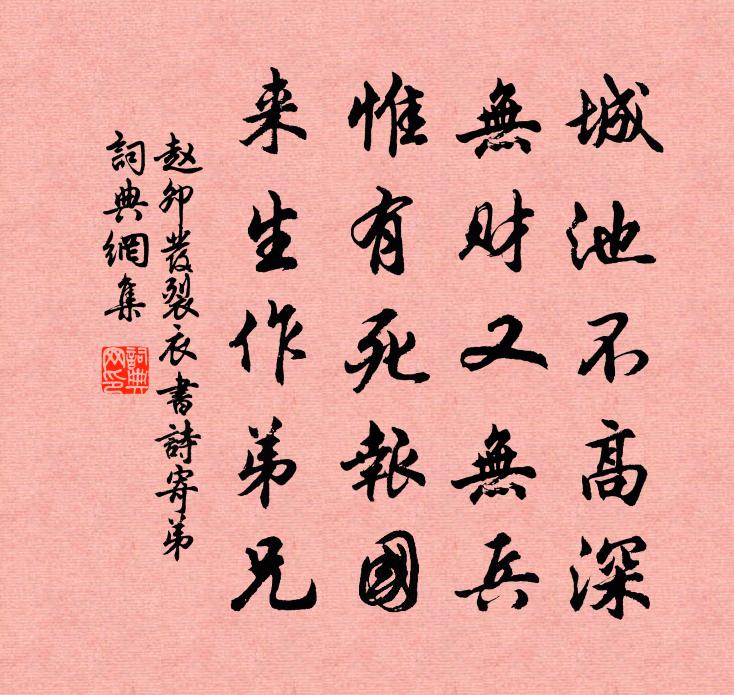 城池不高深
無财又無兵
惟有死報國
来生作弟兄
赵卯發裂衣書詩寄弟
詞典網集
詞典网印